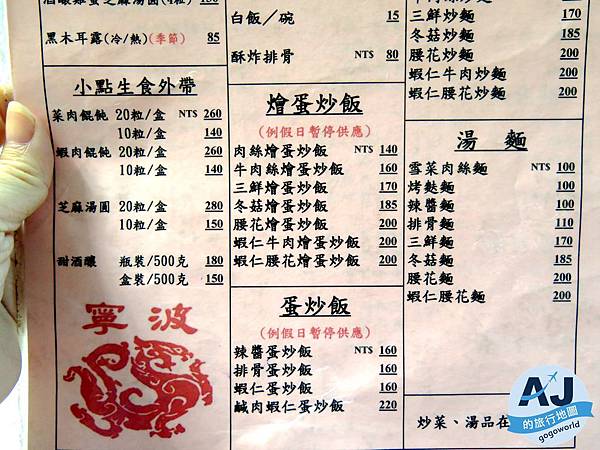 酒釀雞蛋芝麻湯圓(4粒) 130
黑木耳露(冷/熱)(季節) 85
小點生食外帶
菜肉餛飩 20粒/盒 NT$ 260
10粒/盒 140
蝦肉餛飩 20粒/盒 260
10粒/盒 140
芝麻湯圓 20粒/盒 280
10粒/盒 150
甜酒釀 瓶裝/500克 180
盒裝/500克 150
寧波
白飯／碗 15
酥炸排骨 NT$ 80
燴蛋炒飯
(例假日暫停供應)
肉絲燴蛋炒飯 NT$ 140
牛肉絲燴蛋炒飯 160
三鮮燴蛋炒飯 170
冬菇燴蛋炒飯 185
腰花燴蛋炒飯 200
蝦仁牛肉燴蛋炒飯 200
蝦仁腰花燴蛋炒飯 200
蛋炒飯
(例假日暫停供應)
辣醬蛋炒飯 NT$ 160
排骨蛋炒飯 160
蝦仁蛋炒飯 160
鹹肉蝦仁蛋炒飯 220
三鮮炒麵 170
冬菇炒麵 185
腰花炒麵 200
蝦仁牛肉炒麵 200
蝦仁腰花炒麵 200
湯 麵
雪菜肉絲麵 NT$ 100
烤麩麵 100
辣醬麵 100
排骨麵 110
三鮮麵 170
冬菇麵 185
腰花麵 200
蝦仁腰花麵 200
炒菜、湯品在
AJ
的旅行地圖
gogoworld